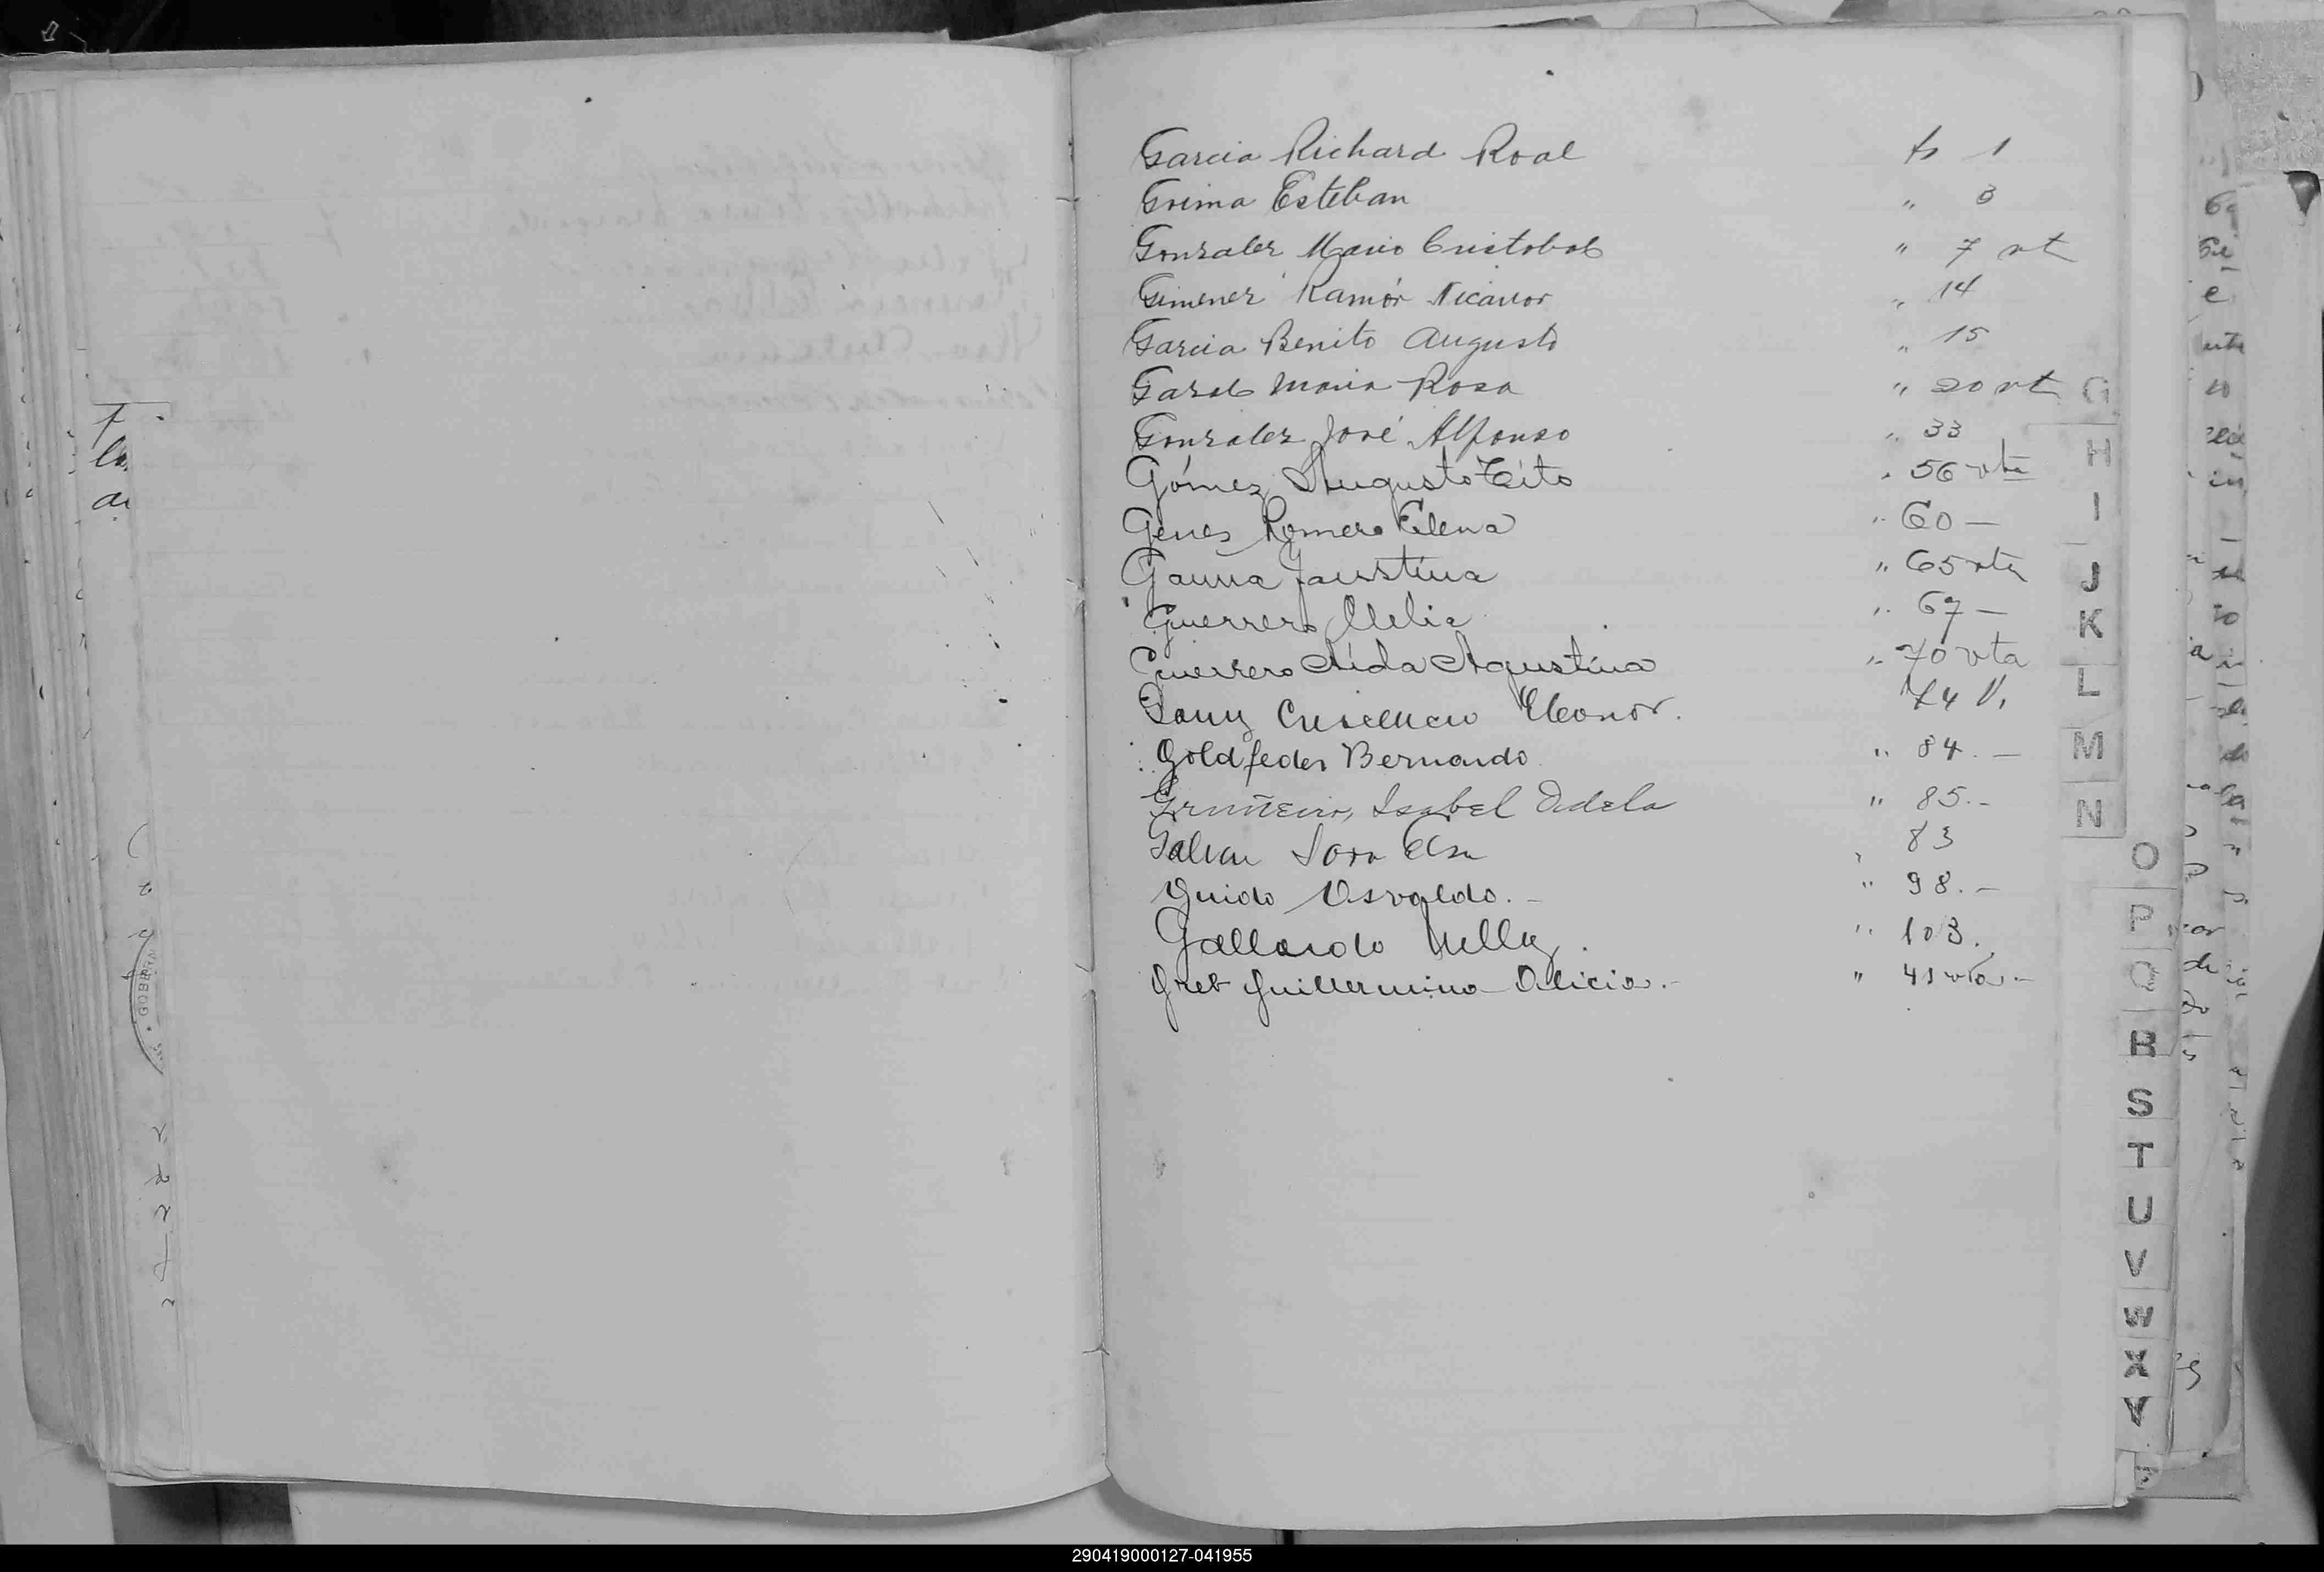 Garcia Richard Roal fs 1
Grima Esteban " 3
Gonzalez Mario Cristobal " 7 vt
Gimenez Ramón Nicanor " 14
Garcia Benito Augusto " 15
Maria Rosa " 20 vt
Gonzalez José Alfonso " 33
Gómez Augusto Tito " 56 vta
Genes Romero Elena " 60 —
Gauna Faustina " 65 vta
Guerrero Clelia " 67 —
Guerrero Aída Agustina " 70 vta
Eleonor. 74 V.
Goldfeder Bernardo " 84. —
Gruñeiro, Isabel Adela " 85.-
Galvan Sara Elsa 83
Guido Osvaldo. - " 98. -
Gallardo Nelly. " 103.
Guillermina Alicia. - " 41 vta. -
G
H
I
J
K
L
M
N
O
P
Q
R
S
T
U
V
W
X
Y
290419000127-041955